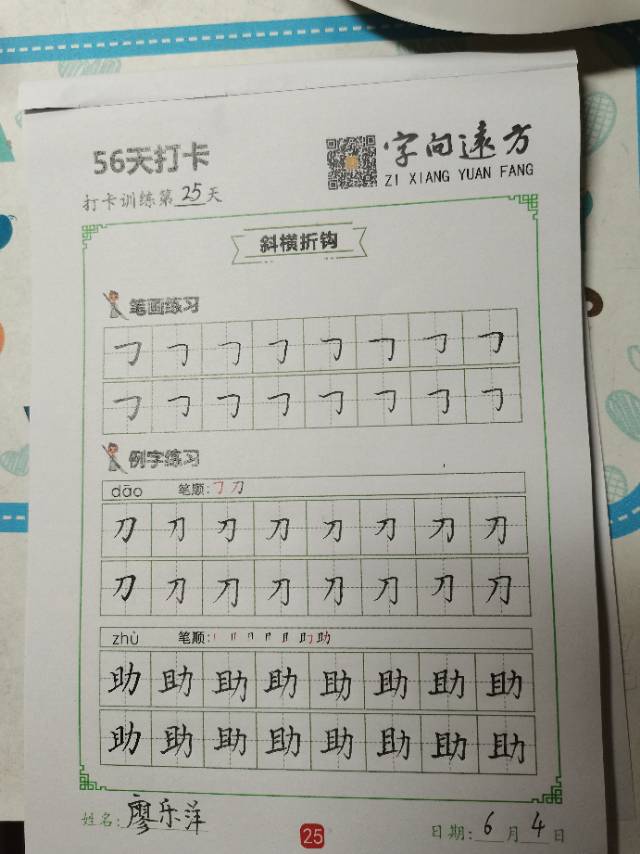 56天打卡
字向远方
ZI XIANG YUAN FANG
打卡训练第25天
斜横折钩
笔画练习
㇆㇆㇆㇆㇆㇆㇆㇆
㇆㇆㇆㇆㇆㇆㇆㇆
例字练习
dāo 笔顺:㇆刀
刀刀刀刀刀刀刀刀
刀刀刀刀刀刀刀刀
zhù 笔顺:
助助助助助助助助
助助助助助助助助
姓名:廖乐洋
25
日期:6月4日